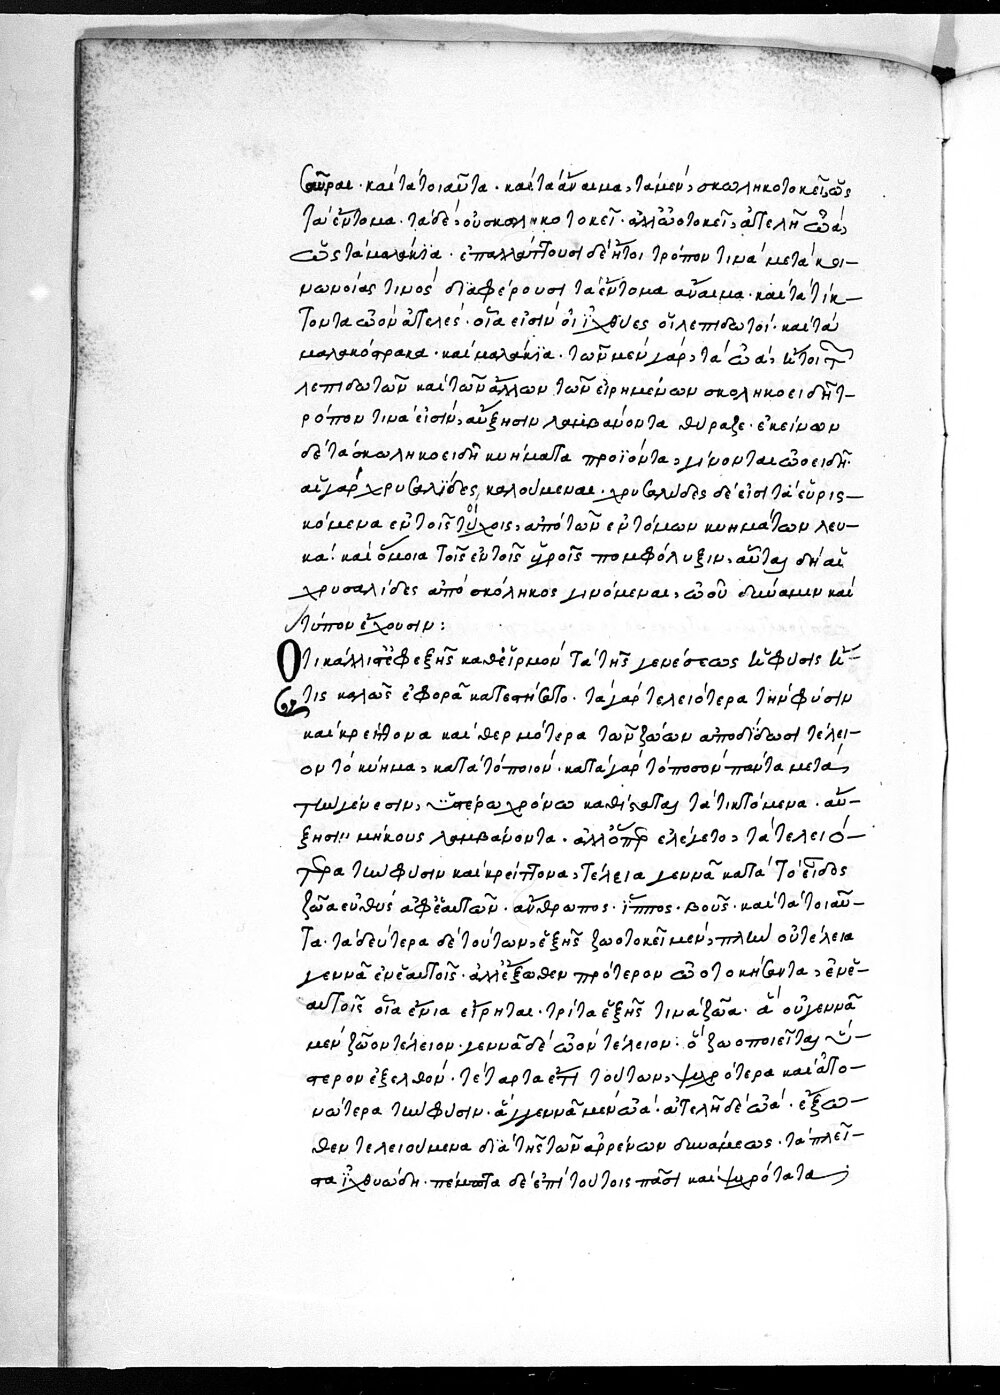 σαῦραι· καὶ τὰ τοιαῦτα· καὶ τὰ ἄναιμα, τὰ μὲν, σκωληκοτοκεῖ, ὡς
τὰ ἔντομα· τὰ δὲ, οὐ σκωληκοτοκεῖ· ἀλλ' ὠοτοκεῖ, ἀτελῆ ὠὰ,
ὡς τὰ μαλάκϊα· ἐπαλλάττουσι δὲ ἤτοι τρόπον τινὰ μετὰ κοι-
νωνοίας τινὸς διαφέρουσι τὰ ἔντομα ἄναιμα· καὶ τὰ τίκ-
τοντα ὠὸν ἀτελὲς· οἷα εἰσὶν οἱ ἰχθύες οἱ λεπιδωτοί· καὶ τὰ
μαλακόστρακα· καὶ μαλάκϊα· τῶν μὲν γὰρ, τὰ ὠὰ, ἤτοι τῶν
λεπιδωτῶν καὶ τῶν ἄλλων τῶν εἰρημένων σκοληκοειδῆ τ-
ρόπον τινὰ εἰσὶν, αὔξησιν λαμβάνοντα θύραζε· ἐκείνων
δὲ τὰ σκωληκοειδῆ κυήματα προϊόντα, γίνονται ὠοειδῆ·
αἱ γὰρ χρυσαλίδες καλούμεναι· χρυσαλύδες δὲ εἰσὶ τὰ εὑρις-
κόμενα ἐν τοῖς τοίχοις, ἀπὸ τῶν ἐντόμων κυημάτων λευ-
κά· καὶ ὅμοια τοῖς ἐν τοῖς ὑγροῖς πομφόλυξιν, αὗται δὴ αἱ
χρυσαλίδες ἀπὸ σκόληκος γινόμεναι, ὠοῦ δύναμιν καὶ
τύπον ἔχουσιν:
Ὅτι κάλλιστ' ἐφεξῆς καθ' εἱρμὸν τὰ τῆς γενέσεως ἡ φύσις ἥ
τις καλῶς ἐφορᾶ κατεστήσατο· τὰ γὰρ τελειότερα τὴν φύσιν
καὶ κρείττονα καὶ θερμότερα τῶν ζώων ἀποδίδωσι τέλει-
ον τὸ κύημα, κατὰ τὸ ποιόν· κατὰ γὰρ τὸ ποσὸν πάντα μετὰ
τὴν γένεσιν, ὑστέρω χρόνω καθίσταται τὰ τικτόμενα· αὔ-
ξησιν μήκους λαμβάνοντα· ἀλλ' ὅπερ ἐλέγετο, τὰ τελειό-
τερα τὴν φύσιν καὶ κρείττονα, τέλεια γεννᾶ κατὰ τὸ εἶδος
ζῶα εὐθὺς ἀφ' ἑαυτῶν· ἄνθρωπος· ἵππος· βοῦς· καὶ τὰ τοιαῦ-
τα· τὰ δεύτερα δὲ τούτων, ἑξῆς ζωοτοκεῖ μὲν, πλὴν οὐ τέλεια
γεννᾶ ἐν ἑαυτοῖς· ἀλλ' ἔξωθεν πρότερον ὠοτοκήσαντα, ἐν ἑ-
αυτοῖς οἷα ἔνια εἴρηται· τρίτα ἑξῆς τινὰ ζῶα· ἃ οὐ γεννᾶ
μὲν ζῶον τέλειον· γεννᾶ δὲ ὠὸν τέλειον· ὃ ζωοποιεῖται ὕσ-
τερον ἐξελθὸν· τέταρτα ἐπὶ τούτων, ψυχρότερα καὶ ἀτο-
νώτερα τὴν φύσιν· ἃ γεννᾶ μὲν ὠὰ· ἀτελῆ δὲ ὠὰ· ἔξω-
θεν τελειούμενα διὰ τῆς τῶν ἀρρένων δυνάμεως· τὰ πλεῖ-
στα ἰχθυώδη· πέμπτα δὲ ἐπὶ τούτοις πᾶσι καὶ ψυχρότατα,